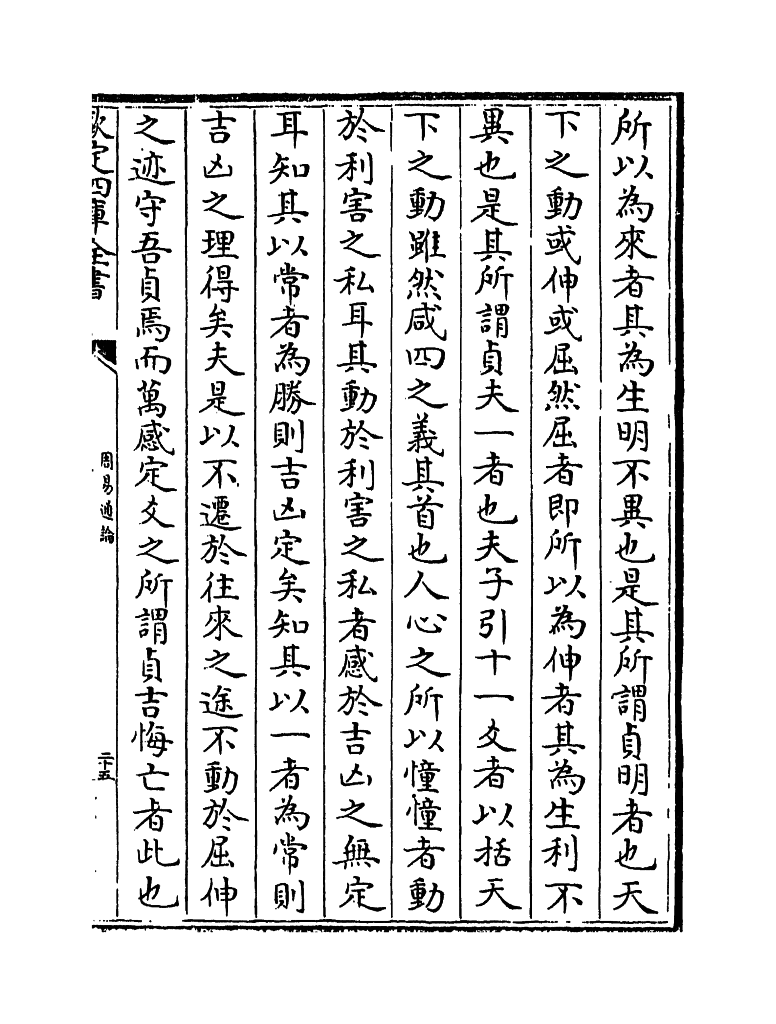 所以為來者其為生明不異也是其所謂貞明者也天
下之動或伸或屈然屈者即所以為伸者其為生利不
異也是其所謂貞夫一者也夫子引十一爻者以括天
下之動雖然咸四之義其首也人心之所以憧憧者動
於利害之私耳其動於利害之私者感於吉凶之無定
耳知其以常者為勝則吉凶定矣知其以一者為常則
吉凶之理得矣夫是以不遷於往來之途不動於屈伸
之迹守吾貞焉而萬感定爻之所謂貞吉悔亡者此也
欽定四庫全書
周易通論
二十五